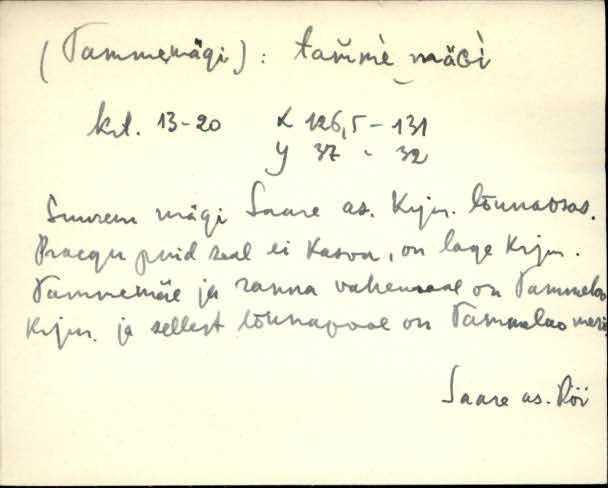 (Tammemägi): tam̆mè mäGì
krt. 13-20 X 126,5 - 131
y 37 - 32
Suurem mägi Saare as. Krjn. lõunaosas.
Praegu puid seal ei kasva, on lage Krjm.
Tammemäe ja ranna vahemaal on Tammelao
Krjm. ja sellest lõunapool on Tammelao meri
Saare as. Pöi